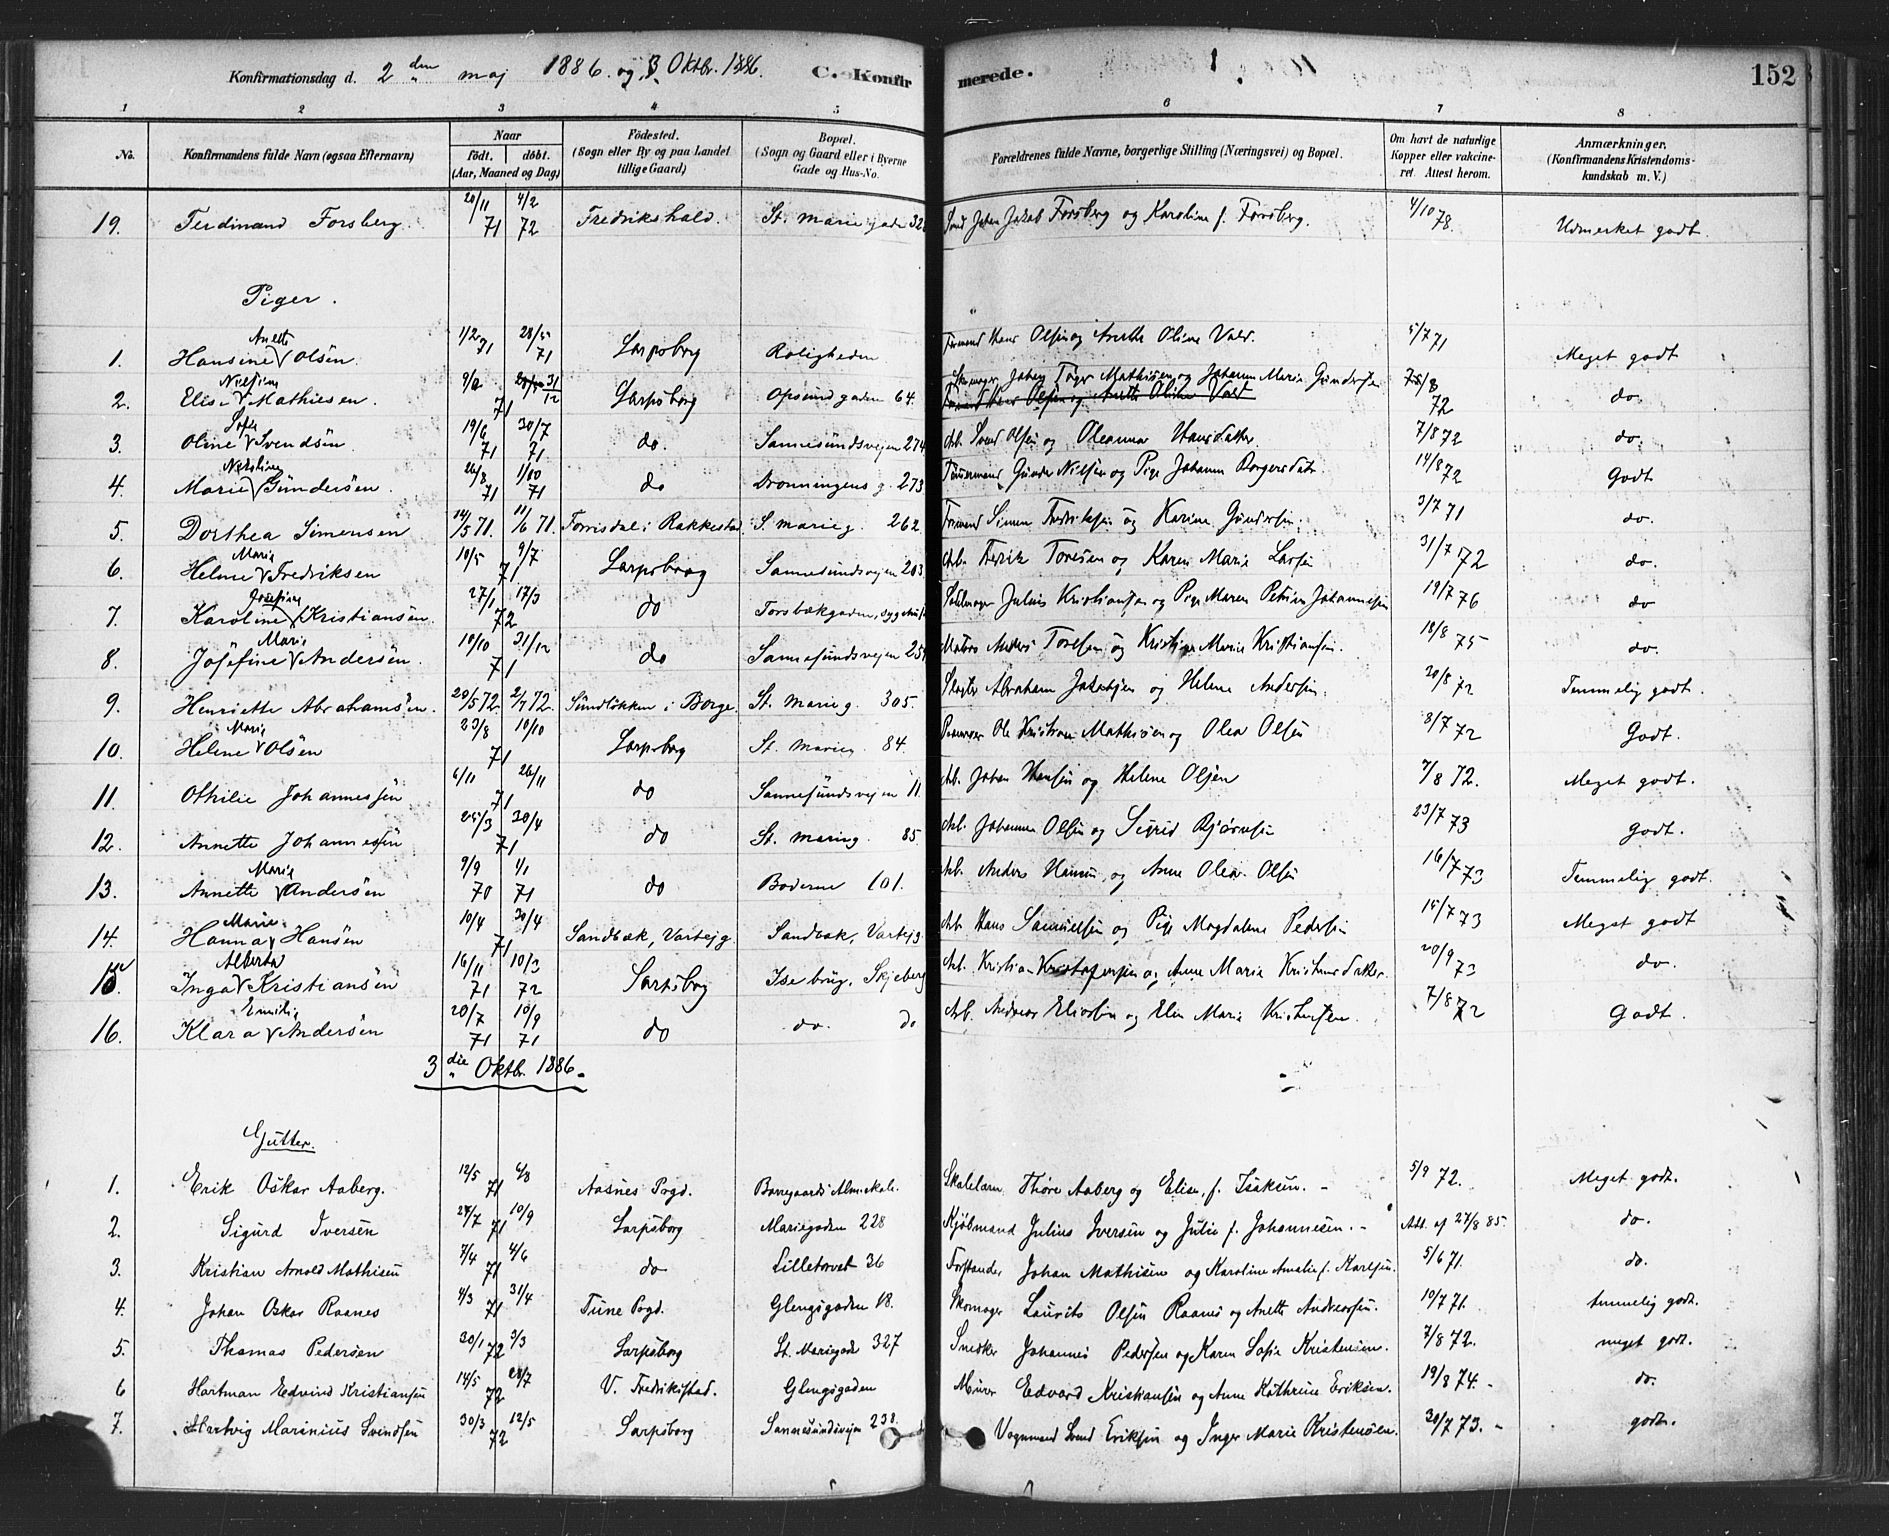 Konfirmationsdag d. 2den maj 1886. og 3 Oktbr. 1886. C. Konfirmerede. 152
1 2 3 4 5 6 7 8
No. Konfirmandens fulde Navn (ogsaa Efternavn) Naar Födt. döbt. (Aar, Maaned og Dag) Födested. (Sogn eller By og paa Landet tillige Gaard) Bopæl. (Sogn og Gaard eller i Byerne Gade og Hus-No. Forældrenes fulde Navne, borgerlige Stilling (Næringsvei) og Bopæl. Om havt de naturlige Kopper eller vakcineret. Attest herom. Anmærkninger. (Konfirmandens Kristendomskundskab m. V.)
19. Ferdinand Forsberg. 20/11 71 4/2 72 Fredrikshald. St. marie gade 32 Johan Jakob Forsberg og Karoline f. Forsberg. 4/10 78. Udmerket godt
Piger.
1. Hansine Anette Olsen. 1/2 71 28/5 71 Sarpsborg Roligheden Formand Hans Olsen og Anette Oline Vald. 5/7 71 Meget godt
2. Elise Nilsine Mathiesen. 9/2 31/12 71 Sarpsborg Opsundgaden 64. Skomager Johan Tøger Mathisen og Johanne Marie Gundersen 8 72 do.
Formand Hans Olsen og Anette Oline Vald
3. Oline Sofie Svendsen 19/6 71 30/7 71. do. Sannesundsvejen 274 Arb. Svend Olsen og Oleanna Hansdatter 7/8 72 do.
4. Marie Nikoline Gundersen. 26/8 71 1/10 71 do Dronningens g. 273 Tømmermand Gunder Nilsen og Pige Johanne Borgersdatr. 14/8 72 Godt
5. Dorthea Simensen 14/5 71. 11/6 71. Torrisdal i Rakkestad S. marieg. 262 Formand Simen Fredriksen og Karine Gundersen. 3/7 71 do.
6. Helene Marie Fredriksen 10/5 9/7 71 Sarpsborg Sannesundsvejen 203 Arb. Fredrik Toresen og Karen Marie Larsen 31/7 72 do.
7. Karoline Josefine Kristiansen. 27/1 17/3 72 do Torsbækgaden, sygehus Sadlmager Julius Kristiansen og Pige Maren Petrine Johannesen 19/7 76 do
8. Josefine Marie Andersen. 10/10 31/12 71 do Sannesundsvejen 25 Matros Anders Torsen og Kristine Marie Kristiansen. 18/8 75 do.
9. Henriette Abrahamsen. 20/5 72. 2/7 72. Sundløkken i Borge. St. Marieg. 305. Slagter Abraham Jakobsen og Helene Andersen. 20/8 72 Temmelig godt.
10. Helene Marie Olsen 23/8 10/10 71 Sarpsborg St. marieg. 84. Ole Kristian Mathisen og Olea Olsen 8/7 72 Godt.
11. Othilie Johannessen 6/11 26/11 71 do Sannesundsvejen 11. Arb. Johan Hansen og Helene Olsen 7/8 72. Meget godt.
12. Annette Johannessen 25/3 30/4 71 do St. marieg. 85 Arb. Johannes Olsen og Sigrid Bjørnsen 23/7 73 Godt.
13. Annette Marie Andersen 9/9 70 1/1 71 do Boderne 101. Arb. Anders Hansen og Anne Olea Olsen 16/7 73 Temmelig godt.
14. Hanna Marie Hansen 10/4 30/4 71 Sandbæk, Varteig Sandbak, Varteig Arb. Hans Samuelsen og Pige Magdalene Pedersen 15/7 73 Meget godt
15. Inga Alberta Kristiansen 16/11 71 10/3 72 Sarpsborg Ise brug, Skjeberg Arb. Kristian Kristofersen og Anne Marie Kristensdatter. 20/9 73 do.
16. Klara Emilie Andersen 20/7 71 10/9 71 do do. do Arb. Andreas Eliassen og Elin Marie Kristensen. 7/8 72 Godt.
3die Oktbr. 1886.
Gutter.
1. Erik Oskar Aaberg. 12/5 6/8 71 Aasnes Prgd. Borregaards Alm.skole. Skolelærer Thore Aaberg og Elise, f. Isaksen. - 5/9 72. Meget godt.
2. Sigurd Iversen 24/7 10/9 71 Sarpsborg Mariegaden 228 Kjøbmand Julius Iversen og Julie f. Johannesen. - Att. af 27/8 85. do.
3. Kristian Arnold Mathisen 7/4 4/6 71 do Lilletorvet 36 Forstander Johan Mathisen og Karoline Amalie f. Karlsen. 5/6 71. do.
4. Johan Oskar Raanes 4/3 31/4 71 Tune Prgd. Glengsgaden 18. Skomager Laurits Olsen Raanes og Anette Andreassen. 10/7 71. temmelig godt.
5. Thomas Pedersen 30/1 3/3 72 Sarpsborg St. Mariegade 327 Snedker Johannes Pedersen og Karen Sofie Kristensen. 7/8 72. meget godt.
6 Hartman Edvind Kristiansen 14/5 28/7 72 V. Fredrikstad. Glengsgaden Murer Edvard Kristiansen og Anne Kathrine Eriksen. 19/8 74. - do.
7. Hartvig Marinius Svendsen 30/3 12/5 72 Sarpsborg Sannesundsvejen 238. Vognmand Svend Eriksen og Inger Marie Kristensen. 30/7 73. - godt.